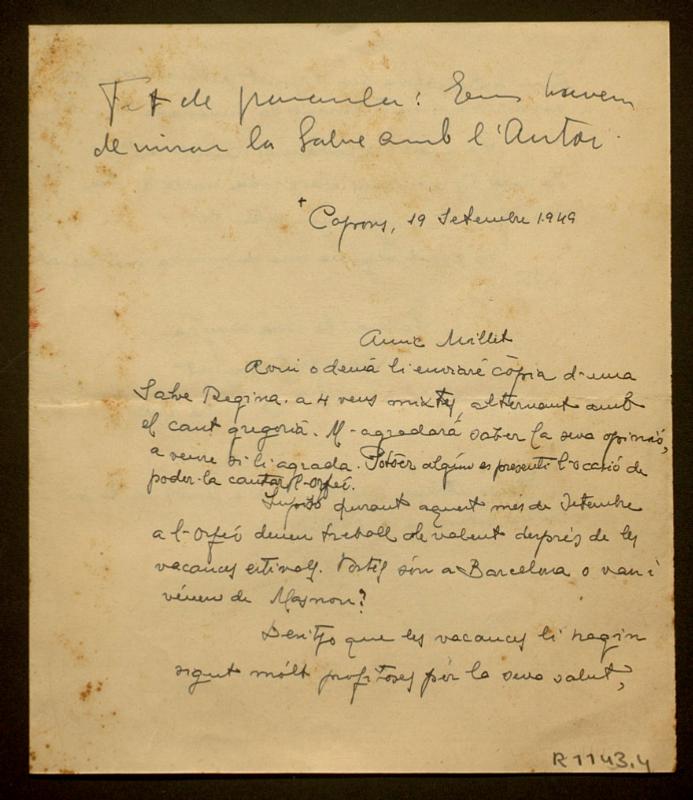 Fet de paraula: Ens havem
de mirar la Salve amb l'Autor.
+ Capons, 19 Setembre 1949
Amic Millet
Avui o demà li enviaré còpia d'una
Salve Regina. a 4 veus mixtes, alternant amb
el cant gregorià. M-agradarà saber la seva opinió,
a veure si li agrada. Potser algún es presenti l-ocasió de
poder-la cantar l-Orfeó.
Suposo durant aquest més de Setembre
a l-Orfeó deuen treball de valent després de les
vacances estivals. Vostès són a Barcelona o van i
vénen de Masnou?
Desitjo que les vacances li hagin
sigut mólt profitoses per la seva salut,
R1143.4